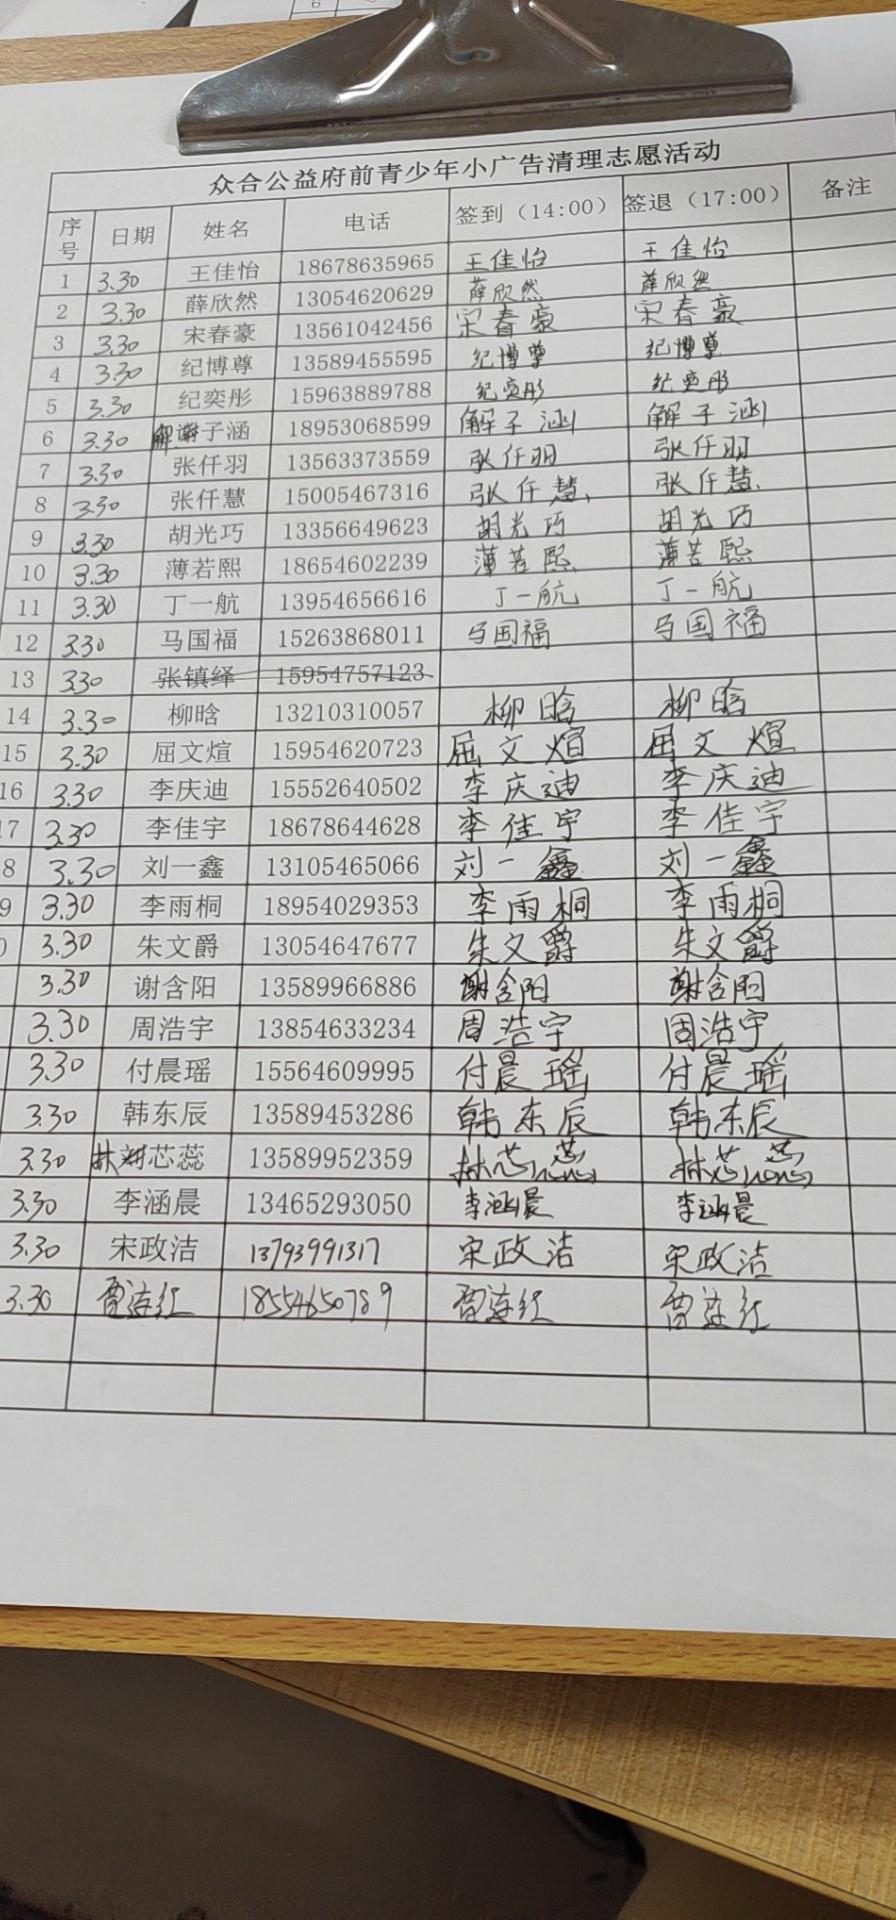 众合公益府前青少年小广告清理志愿活动
序号 日期 姓名 电话 签到（14:00） 签退（17:00） 备注
1 3.30 王佳怡 18678635965 王佳怡 王佳怡
2 3.30 薛欣然 13054620629 薛欣然 薛欣然
3 3.30 宋春豪 13561042456 宋春豪 宋春豪
4 3.30 纪博尊 13589455595 纪博尊 纪博尊
5 3.30 纪奕彤 15963889788 纪奕彤 纪奕彤
6 3.30 解子涵 18953068599 解子涵 解子涵
7 3.30 张仟羽 13563373559 张仟羽 张仟羽
8 3.30 张仟慧 15005467316 张仟慧 张仟慧
9 3.30 胡光巧 13356649623 胡光巧 胡光巧
10 3.30 薄若熙 18654602239 薄若熙 薄若熙
11 3.30 丁一航 13954656616 丁一航 丁一航
12 3.30 马国福 15263868011 马国福 马国福
13 3.30 张镇绎 15954757123
14 3.30 柳晗 13210310057 柳晗 柳晗
15 3.30 屈文煊 15954620723 屈文煊 屈文煊
16 3.30 李庆迪 15552640502 李庆迪 李庆迪
17 3.30 李佳宇 18678644628 李佳宇 李佳宇
8 3.30 刘一鑫 13105465066 刘一鑫 刘一鑫
9 3.30 李雨桐 18954029353 李雨桐 李雨桐
0 3.30 朱文爵 13054647677 朱文爵 朱文爵
3.30 谢含阳 13589966886 谢含阳 谢含阳
3.30 周浩宇 13854633234 周浩宇 周浩宇
3.30 付晨瑶 15564609995 付晨瑶 付晨瑶
3.30 韩东辰 13589453286 韩东辰 韩东辰
3.30 林芯蕊 13589952359 林芯蕊 林芯蕊
3.30 李涵晨 13465293050 李涵晨 李涵晨
3.30 宋政洁 13793991317 宋政洁 宋政洁
3.30 18554650789